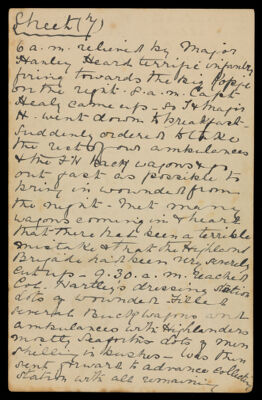 Sheet (7)
6 a.m. relieved by Major
Hanley Heard terrific infantry
firing towards the big Koppje
on the right. 8. a.m. Capt
Healy came up - so I & Major
H. went down to breakfast -
Suddenly ordered to take
the rest of our ambulances
& the Buck wagons & go
out fast as possible to
bring in wounded from
the night - Met many
wagons coming in & heard
that there had been a terrible
mistake & that the Highland
Brigade had been very severely
cut up - 9.30. a.m. reached
Col. Hartley's dressing station
lots of wounded - Filled
several Buck Wagons and
ambulances with Highlanders
mostly Seaforths lots of men
skulking in bushes - Was then
sent forward to advance collecting
station with all remaining